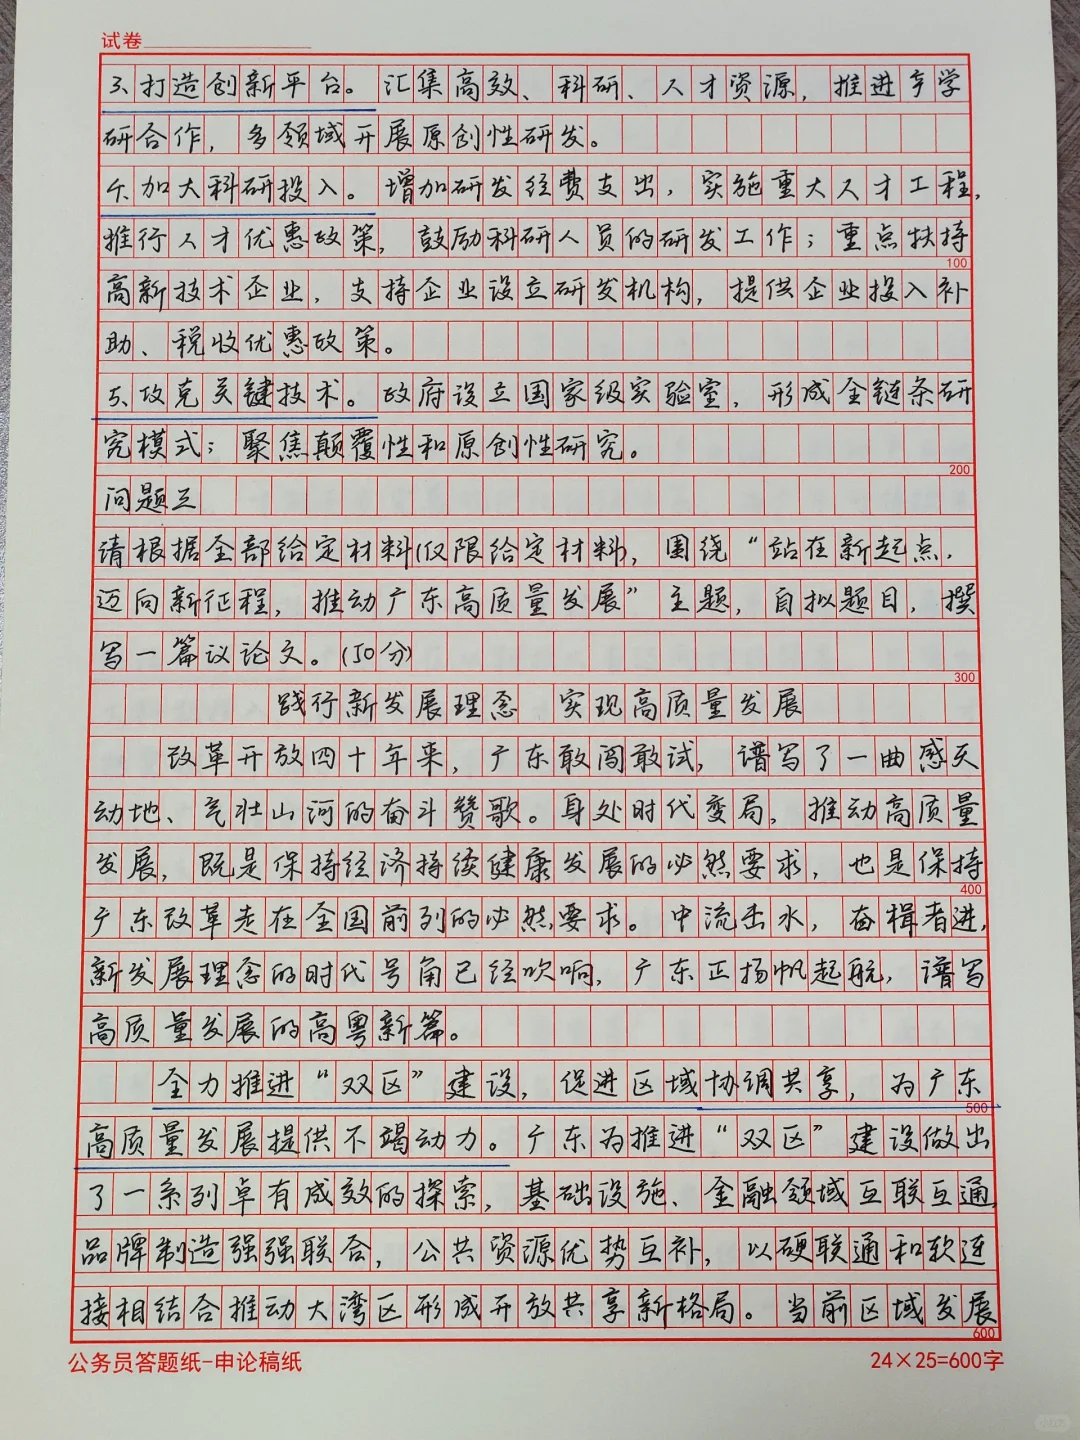 试卷
3、打造创新平台。汇集高效、科研、人才资源，推进产学
研合作，多领域开展原创性研发。
4、加大科研投入。增加研发经费支出，实施重大人才工程，
推行人才优惠政策，鼓励科研人员的研发工作；重点扶持
100
高新技术企业，支持企业设立研发机构，提供企业投入补
助、税收优惠政策。
5、攻克关键技术。政府设立国家级实验室，形成全链条研
究模式；聚焦颠覆性和原创性研究。
200
问题三
请根据全部给定材料(仅限给定材料)，围绕“站在新起点，
迈向新征程，推动广东高质量发展”主题，自拟题目，撰
写一篇议论文。(50分)
300
践行新发展理念 实现高质量发展
改革开放四十年来，广东敢闯敢试，谱写了一曲感天
动地、气壮山河的奋斗赞歌。身处时代变局，推动高质量
发展，既是保持经济持续健康发展的必然要求，也是保持
400
广东改革走在全国前列的必然要求。中流击水，奋楫者进，
新发展理念的时代号角已经吹响，广东正扬帆起航，谱写
高质量发展的高粤新篇。
全力推进“双区”建设，促进区域协调共享，为广东
500
高质量发展提供不竭动力。广东为推进“双区”建设做出
了一系列卓有成效的探索，基础设施、金融领域互联互通，
品牌制造强强联合，公共资源优势互补，以硬联通和软连
接相结合推动大湾区形成开放共享新格局。当前区域发展
600
公务员答题纸-申论稿纸 24×25=600字